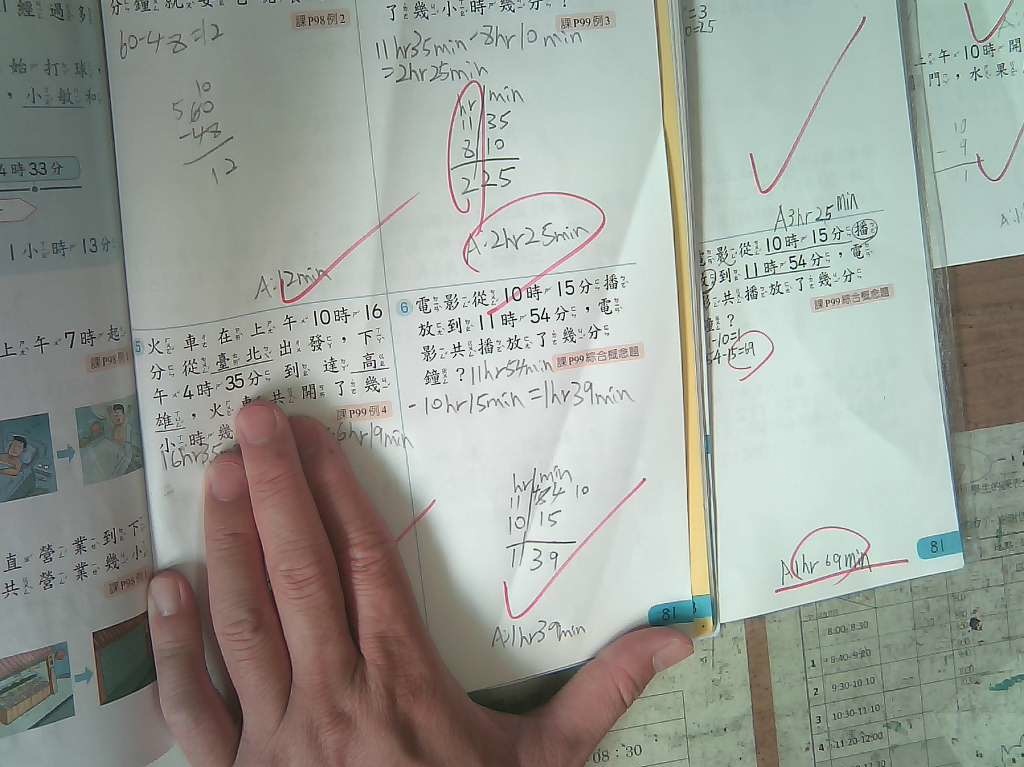 課P98例2
60-48=12
10
5 60
-48
12
A:12min
了幾小時幾分?
課P99例3
11hr35min-8hr10min
=2hr25min
hr min
11 35
8 10
2 25
A:2hr25min
5 火車在上午10時16
分從臺北出發,下
午4時35分到達高
雄,火車共開了幾
小時幾
課P99例4
16hr35
6hr19min
6 電影從10時15分播
放到11時54分,電
影共播放了幾分
鐘?
課P99綜合概念題
11hr54min
-10hr15min=1hr39min
hr min
11 54 10
10 15
1 39
A:1hr39min
81
經過多
始打球,
,小敏和
4時33分
1小時13分
上午7時起
直營業到下
共營業幾小
=3
=25
A3hr25min
電影從10時15分播
到11時54分,電
影共播放了幾分
鐘?
課P99綜合概念題
-10=1
54-15=
A1hr69min
81
上午10時開
門,水果
10
- 9
1
8:00-8:30
1 8:40-9:20
2 9:30-10:10
3 10:30-11:10
4 11:20-12:00
08:30